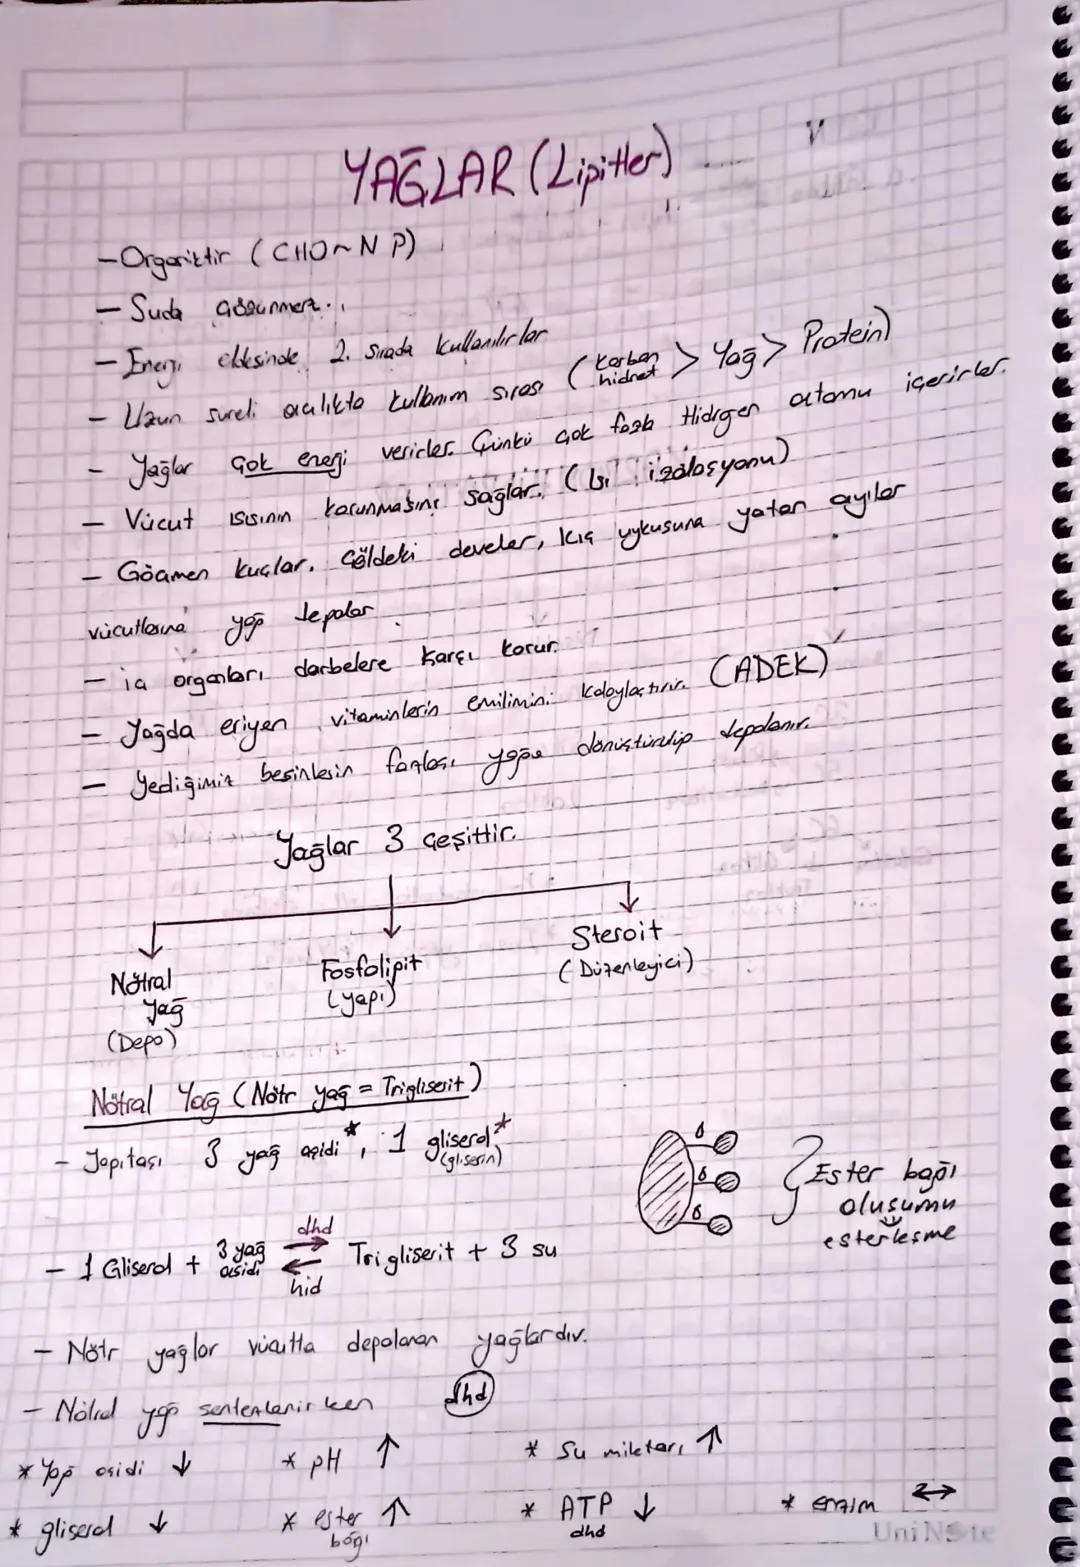 YAĞLAR (Lipitler)
- Organiktir (CHO ~ N P)
- Suda çözünmez.
- Enerji eldesinde 2. sırada kullanılırlar
- Uzun süreli açlıkta kullanım sırası (Karbon hidrat > Yağ > Protein)
- Yağlar çok enerji verirler. Çünkü çok fazla Hidrojen atomu içerirler.
- Vücut ısısının korunmasını sağlar. (Isı izolasyonu)
- Göçmen kuşlar, Çöldeki develer, kış uykusuna yatan ayılar
vücutlarına yağ depolar.
- iç organları darbelere karşı korur.
- Yağda eriyen vitaminlerin emilimini kolaylaştırır. (ADEK)
- Yediğimiz besinlerin fazlası yağa dönüştürülüp depolanır.
Yağlar 3 çeşittir.
Nötral Yağ (Depo)
Fosfolipit (yapı)
Steroit (Düzenleyici)
Nötral Yağ (Nötr yağ = Trigliserit)
- Yapıtaşı 3 yağ asidi*, 1 gliserol* (gliserin)
Ester bağı
oluşumu
esterleşme
- 1 Gliserol + 3 yağ asidi ⇌ Trigliserit + 3 su
dhd
hid
- Nötr yağlar vücutta depolanan yağlardır.
- Nötral yağ sentezlenirken dhd
* Yağ asidi ↓ * pH ↑ * Su miktarı ↑
* gliserol ↓ * ester bağı ↑ * ATP dhd ↓ * enzim ↔
UniNote